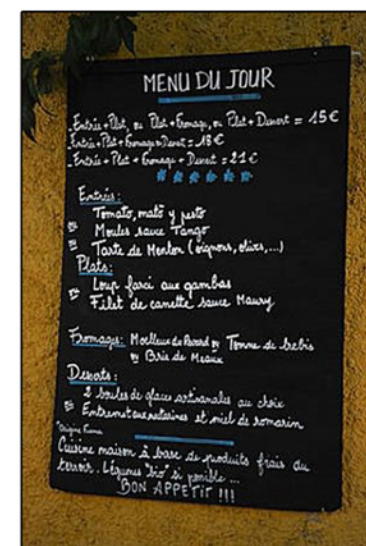 MENU DU JOUR
- Entrée + Plat, ou Plat + Fromage, ou Plat + Dessert = 15€
- Entrée + Plat + Fromage ou Dessert = 18€
- Entrée + Plat + Fromage + Dessert = 21€
Entrées :
Tomato, mató y pesto
ou Moules sauce Tango
ou Tarte de Menton (oignons, olives, ...)
Plats :
Loup farci aux gambas
ou Filet de canette sauce Maury
Fromages : Moelleux du Revard ou Tomme de brebis
ou Brie de Meaux
Desserts :
2 boules de glaces artisanales au choix
ou Entremet aux nectarines et miel de romarin
*Origine France
Cuisine maison à base de produits frais du
terroir. Légumes "bio" si possible ...
BON APPETIT !!!